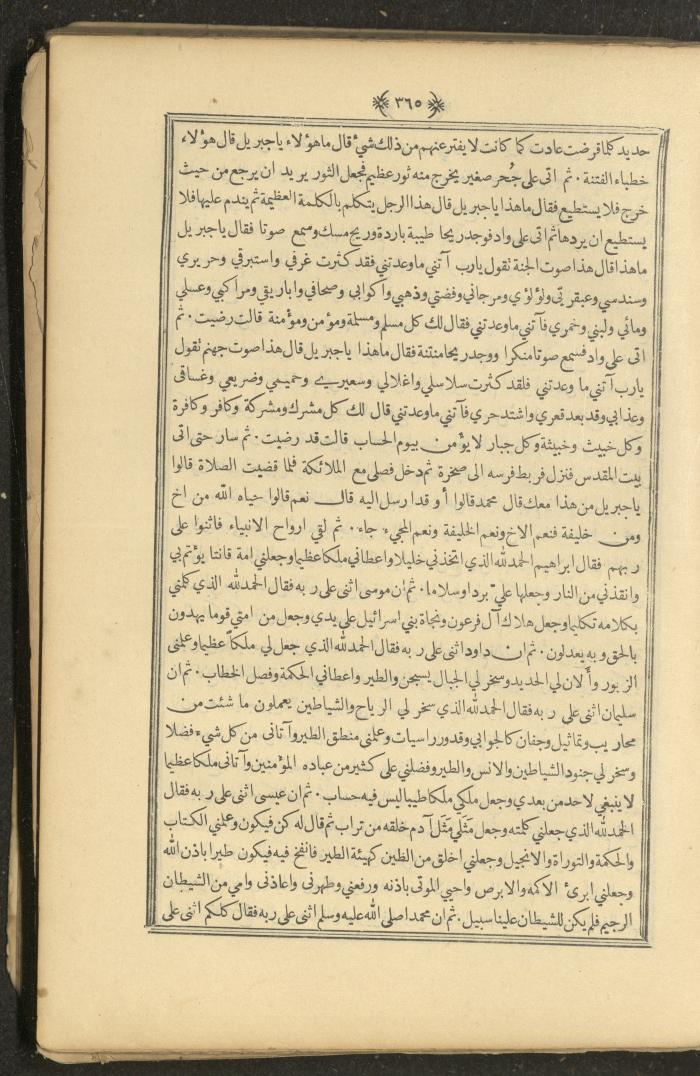 ٣٦٥
حديد كلما قرضت عادت كما كانت لا يفتر عنهم من ذلك شيء قال ما هؤلاء يا جبريل قال هؤلاء
خطباء الفتنة. ثم اتى على جُحر صغير يخرج منه ثور عظيم فجعل الثور يريد ان يرجع من حيث
خرج فلا يستطيع فقال ما هذا يا جبريل قال هذا الرجل يتكلم بالكلمة العظيمة ثم يندم عليها فلا
يستطيع ان يردها ثم اتى على واد فوجد ريحا طيبة باردة وريح مسك وسمع صوتا فقال يا جبريل
ما هذا قال هذا صوت الجنة تقول يا رب آتني ما وعدتني فقد كثرت غرفي واستبرقي وحريري
وسندسي وعبقريّي ولؤلؤي ومرجاني وفضتي وذهبي واكوابي وصحافي واباريقي ومراكبي وعسلي
ومائي ولبني وخمري فآتني ما وعدتني فقال لك كل مسلم ومسلمة ومؤمن ومؤمنة قالت رضيت. ثم
اتى على واد فسمع صوتا منكرا ووجد ريحا منتنة فقال ما هذا يا جبريل قال هذا صوت جهنم تقول
يا رب آتني ما وعدتني فلقد كثرت سلاسلي واغلالي وسعيري وحميمي وضريعي وغساقي
وعذابي وقد بعد قعري واشتد حري فآتني ما وعدتني قال لك كل مشرك ومشركة وكافر وكافرة
وكل خبيث وخبيثة وكل جبار لا يؤمن بيوم الحساب قالت قد رضيت. ثم سار حتى اتى
بيت المقدس فنزل فربط فرسه الى صخرة ثم دخل فصلى مع الملائكة فلما قضيت الصلاة قالوا
يا جبريل من هذا معك قال محمد قالوا أو قد ارسل اليه قال نعم قالوا حياه الله من اخ
ومن خليفة فنعم الاخ ونعم الخليفة ونعم المجيء جاء. ثم لقي ارواح الانبياء فاثنوا على
ربهم فقال ابراهيم الحمد لله الذي اتخذني خليلا واعطاني ملكا عظيما وجعلني امة قانتا يؤتم بي
وانقذني من النار وجعلها عليّ بردا وسلاما. ثم ان موسى اثنى على ربه فقال الحمد لله الذي كلمني
بكلامه تكليما وجعل هلاك آل فرعون ونجاة بني اسرائيل على يدي وجعل من امتي قوما يهدون
بالحق وبه يعدلون. ثم ان داود اثنى على ربه فقال الحمد لله الذي جعل لي ملكاً عظيما وعلمني
الزبور وأَلان لي الحديد وسخر لي الجبال يسبحن والطير واعطاني الحكمة وفصل الخطاب. ثم ان
سليمان اثنى على ربه فقال الحمد لله الذي سخر لي الرياح والشياطين يعملون ما شئت من
محاريب وتماثيل وجفان كالجوابي وقدور راسيات وعلمني منطق الطير وآتاني من كل شيء فضلا
وسخر لي جنود الشياطين والانس والطير وفضلني على كثير من عباده المؤمنين وآتاني ملكا عظيما
لا ينبغي لاحد من بعدي وجعل ملكي ملكا طيبا ليس فيه حساب. ثم ان عيسى اثنى على ربه فقال
الحمد لله الذي جعلني كلمته وجعل مَثَلي مَثَل آدم خلقه من تراب ثم قال له كن فيكون وعلمني الكتاب
والحكمة والتوراة والانجيل وجعلني اخلق من الطين كهيئة الطير فانفخ فيه فيكون طيرا باذن الله
وجعلني ابرئ الاكمه والابرص واحيي الموتى باذنه ورفعني وطهرني واعاذني وامي من الشيطان
الرجيم فلم يكن للشيطان علينا سبيل. ثم ان محمدا صلى الله عليه وسلم اثنى على ربه فقال كلكم اثنى على